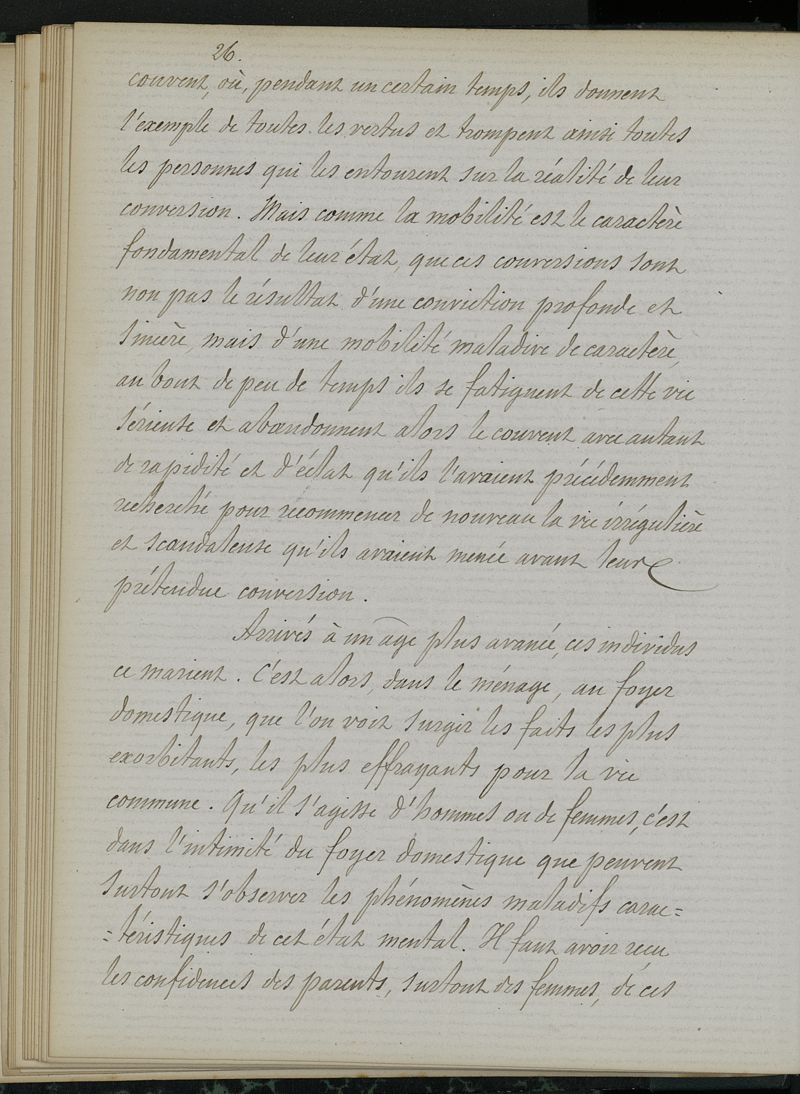 26.
couvent, où, pendant un certain temps, ils donnent
l'exemple de toutes les vertus et trompent ainsi toutes
les personnes qui les entourent sur la réalité de leur
conversion. Mais comme la mobilité est le caractère
fondamental de leur état, que ces conversions sont
non pas le résultat d'une conviction profonde et
sincère, mais d'une mobilité maladive de caractère,
au bout de peu de temps ils se fatiguent de cette vie
sérieuse et abandonnent alors le couvent avec autant
de rapidité et d'éclat qu'ils l'avaient précédemment
recherché pour recommencer de nouveau la vie irrégulière
et scandaleuse qu'ils avaient menée avant leur
prétendue conversion.
Arrivés à un âge plus avancé, ces individus
ce marient. C'est alors, dans le ménage, au foyer
domestique, que l'on voit surgir les faits les plus
exorbitants, les plus effrayants pour la vie
commune. Qu'il s'agisse d'hommes ou de femmes, c'est
dans l'intimité du foyer domestique que peuvent
surtout s'observer les phénomènes maladifs carac=
=téristiques de cet état mental. Il faut avoir reçu
les confidences des parents, surtout des femmes, de ces